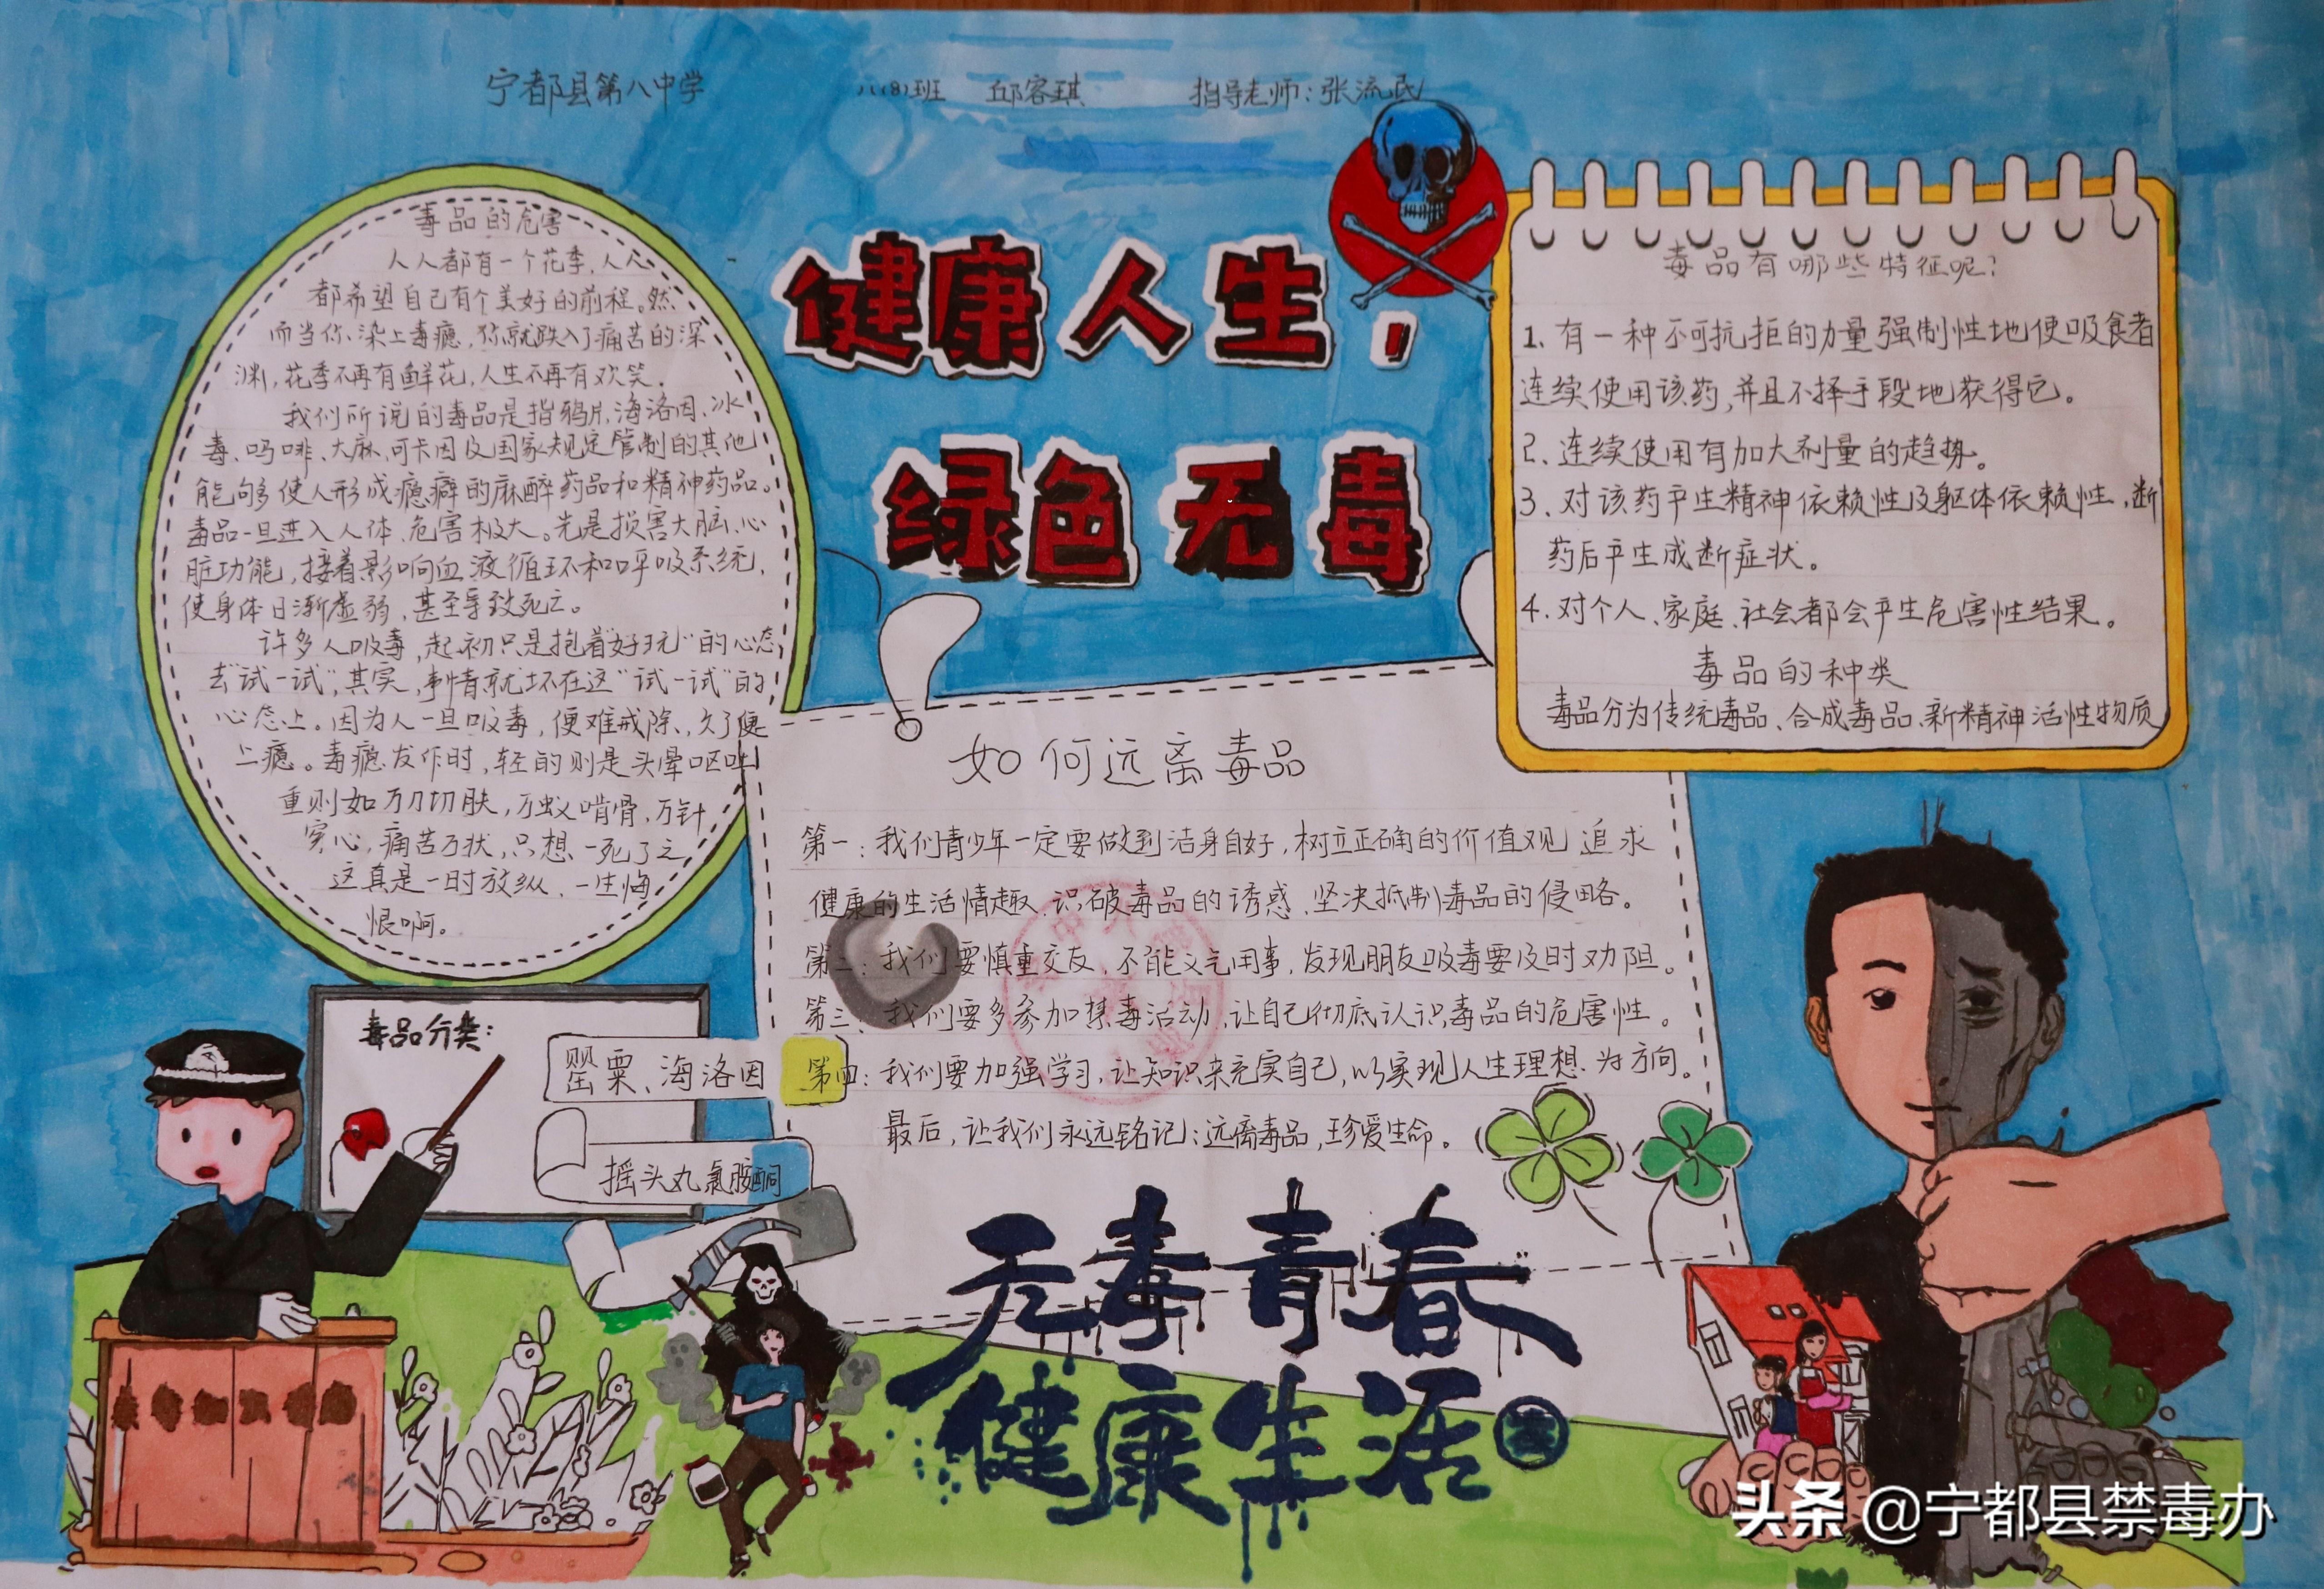 宁都县第八中学 八(8)班 邱容琪 指导老师:张流民
健康人生,
绿色无毒
毒品的危害
人人都有一个花季,人人
都希望自己有个美好的前程。然
而当你染上毒瘾,你就跌入了痛苦的深
渊,花季不再有鲜花,人生不再有欢笑。
我们所说的毒品是指鸦片,海洛因、冰
毒、吗啡、大麻、可卡因及国家规定管制的其他
能够使人形成瘾癖的麻醉药品和精神药品。
毒品一旦进入人体,危害极大。先是损害大脑、心
脏功能,接着影响血液循环和呼吸系统,
使身体日渐虚弱,甚至导致死亡。
许多人吸毒,起初只是抱着"好玩"的心态
去"试一试",其实,事情就坏在这"试一试"的
心态上。因为人一旦吸毒,便难戒除,久了便
上瘾。毒瘾发作时,轻的则是头晕呕吐
重则如万刀切肤,万蚁啃骨,万针
穿心,痛苦万状,只想一死了之
这真是一时放纵,一生悔
恨啊。
毒品有哪些特征呢?
1、有一种不可抗拒的力量强制性地使吸食者
连续使用该药,并且不择手段地获得它。
2、连续使用有加大剂量的趋势。
3、对该药产生精神依赖性及躯体依赖性,断
药后产生戒断症状。
4、对个人、家庭、社会都会产生危害性结果。
毒品的种类
毒品分为传统毒品、合成毒品、新精神活性物质
如何远离毒品
第一:我们青少年一定要做到洁身自好,树立正确的价值观 追求
健康的生活情趣,识破毒品的诱惑、坚决抵制毒品的侵略。
第二:我们要慎重交友,不能义气用事,发现朋友吸毒要及时劝阻。
第三、我们要多参加禁毒活动,让自己彻底认识毒品的危害性。
第四:我们要加强学习,让知识来充实自己,以实现人生理想为方向。
最后,让我们永远铭记:远离毒品,珍爱生命。
毒品分类:
罂粟、海洛因
摇头丸氯胺酮
无毒青春
健康生活
头条 @宁都县禁毒办